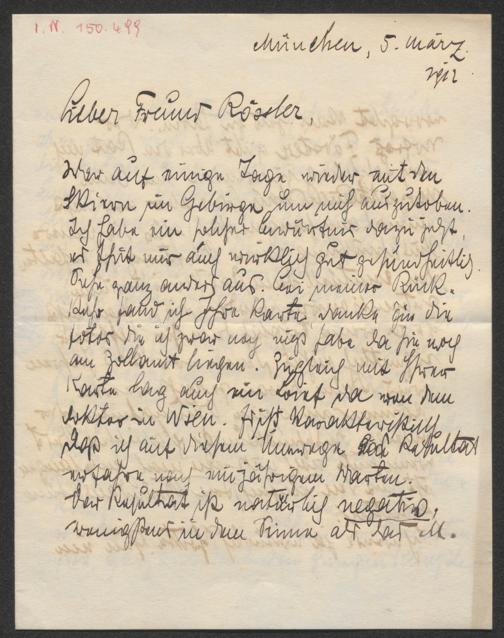 I.N. 150.499
München, 5. März
1912
Lieber Freund Rössler,
War auf einige Tage wieder mit den
Skiern im Gebirge um mich auszutoben.
Ich habe ein solches Bedürfnis dazu jetzt,
es thut mir auch wirklich gut gesundheitlich.
Sehe ganz anders aus. Bei meiner Rück-
kehr fand ich Ihre Karte, danke für die
Fotos die ich zwar noch nicht habe da sie noch
am Zollamt liegen. Zugleich mit Ihrer
Karte lag auch ein Brief da von dem
Doktor in Wien. Ist karakteristisch
Daß ich auf diesem Umwege das Resultat
erfahre nach einjährigem Warten.
Das Resultat ist natürlich negativ,
wenigstens in dem Sinne als das M.